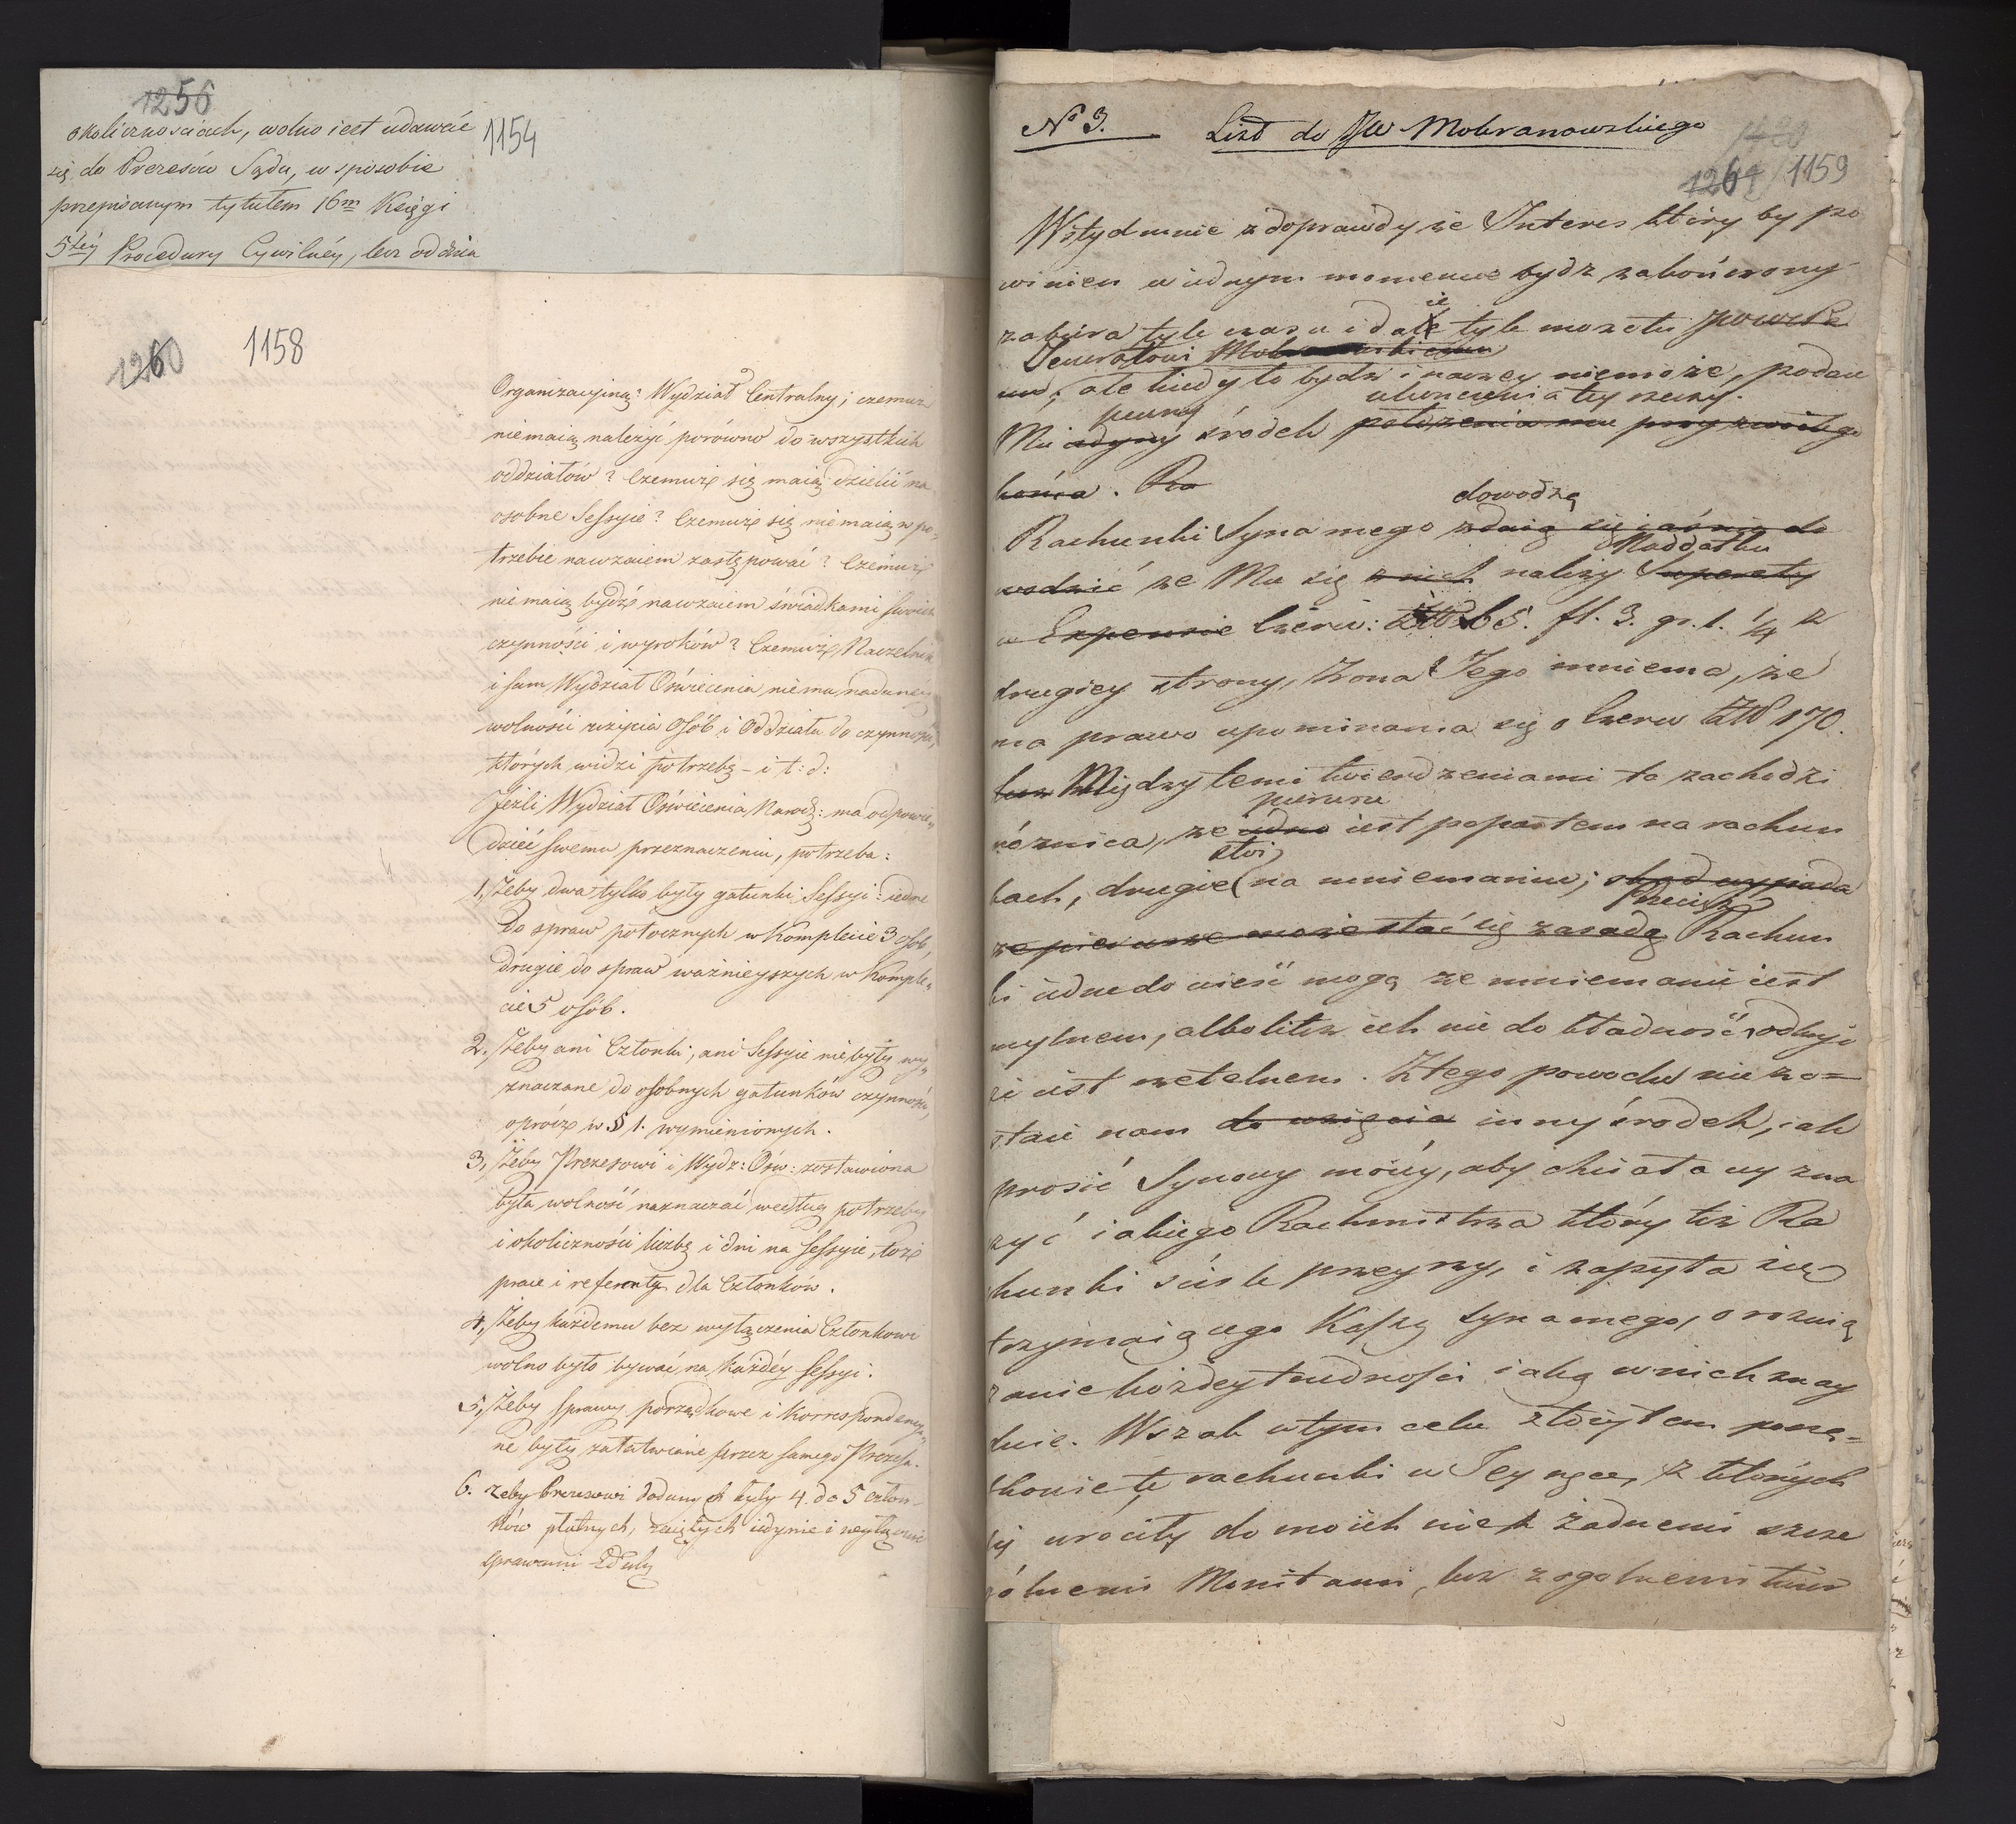 1256
1154
okolicznościach, wolno iest udawać
się do Prezesów Sądu, w sposobie
przepisanym tytułem 16m Księgi
5téy Procedury Cywilnéy, lecz od dnia
1260
1158
Organizacyiną? Wydział Centralny; czemuż
nie maią należyć porówno do wszystkich
oddziałów? Czemuż się maią dzielić na
osobne Sessyie? Czemuż się nie maią w po„
trzebie nawzaiem zastępować? Czemuż
nie maią bydź nawzaiem świadkami swoich
czynności i wyroków? Czemuż Naczelnik
i sam Wydział Oświecenia niema nadanéy
wolności użycia Osób i Oddziału do czynności,
których widzi potrzebę – i t: d:
Jeżli Wydział Oświecenia Narod: ma odpowie„
dzieć swemu przeznaczeniu, potrzeba:
1, Żeby dwa tylko były gatunki Sessyi: iedne
do spraw potocznych w Komplecie 3 osób,
drugie do spraw ważnieyszych w Komple„
cie 5 osób.
2., Żeby ani Członki, ani Sessyie nie były wy„
znaczane do osobnych gatunków czynności,
oprócz w § 1. wymienionych.
3, Żeby Prezesowi i Wydz: Ośw: zostawiona
była wolność naznaczać według potrzeby
i okoliczności liczbę i dni na Sessyie, toż
prace i referaty dla Członków.
4, Żeby każdemu bez wyłączenia Członkowi
wolno było bywać na każdéy Sessyi.
5, Żeby sprawy porządkowe i Korrespondency„
ne były załatwiane przez samego Prezesa.
6. Żeby Prezesowi dodanych były 4. do 5 człon„
ków płatnych, zaiętych iedynie i wyłącznie
sprawami Eduk
No 3. List do JW Mokranowskiego
1264 1159
Wstyd mnie zdoprawdy że Interes który by po
winien w iednym momencie bydź zakończony
ie
zabiera tyle czasu i daie tyle mozołu
Generałowi
ale kiedy to bydź inaczey niemoże, podaie
pewny ukończenia tey rzeczy.
Mu iedyny środek położenia mu przyzwoitego
końca. Ra
dowodzą
Rachunki Syna mego zdaią się iaśnie do
Naddatku
wodzić że Mu się z nich należy Superaty
w Expensie Czerw: 65. fl. 3. gr. 1. 1/4 z
drugiey strony, Żona Jego mniema, że
ma prawo upominania się o Czerw 170.
lecz Między temi twierdzeniami ta zachodzi
pierwsze
różnica, że iedno iest popartem na rachun
stoi
kach, drugie na mniemaniu; skąd wypada
że pierwsze może stać się zasadą Rachun
ki iedne dowieść mogą że mniemanie iest
mylnem, albo liteż ich niedokładność odkryć
że iest rzetelnem. Z tego powodu nie zo=
staie nam do wzięcia inny środek, iak
prosić Synowy moiéy, aby chciała wyzna
czyć iakiego Rachmistrza który też Ra
chunki ściśle przeyrzy, i zapyta się
trzymaiącego Kassę syna mego, o rozwią
zanie każdey trudności iaką w nich znay
dzie. Wszak w tym celu złożyłem porzą=
z których
się wróciły do moich niek żadnemi szcze
gólnemi Monitami, lecz z ogólnemi twier